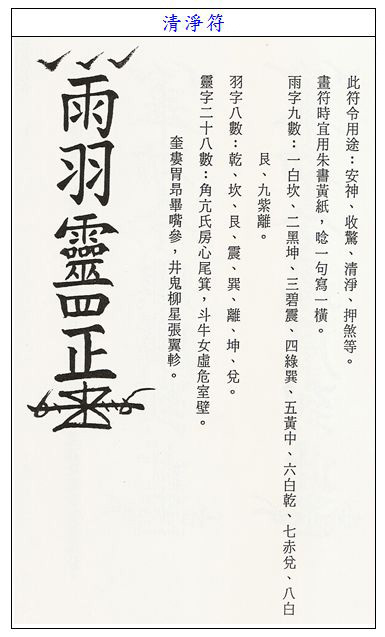 清淨符
此符令用途：安神、收驚、清淨、押煞等。
畫符時宜用朱書黃紙，唸一句寫一橫。
雨字九數：一白坎、二黑坤、三碧震、四綠巽、五黃中、六白乾、七赤兌、八白
艮、九紫離。
羽字八數：乾、坎、艮、震、巽、離、坤、兌。
靈字二十八數：角亢氏房心尾箕，斗牛女虛危室壁。
奎婁胃昴畢嘴參，井鬼柳星張翼軫。
雨羽靈罡